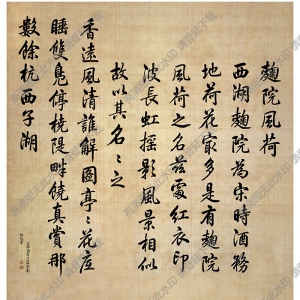 麯院風荷
西湖麯院為宋時酒務
地荷花冣多是有麯院
風荷之名茲處紅衣印
波長虹搖影風景相似
故以其名々之
香遠風清誰解圖亭々花底
睡雙鳧停橈隄畔饒真賞那
數餘杭西子湖